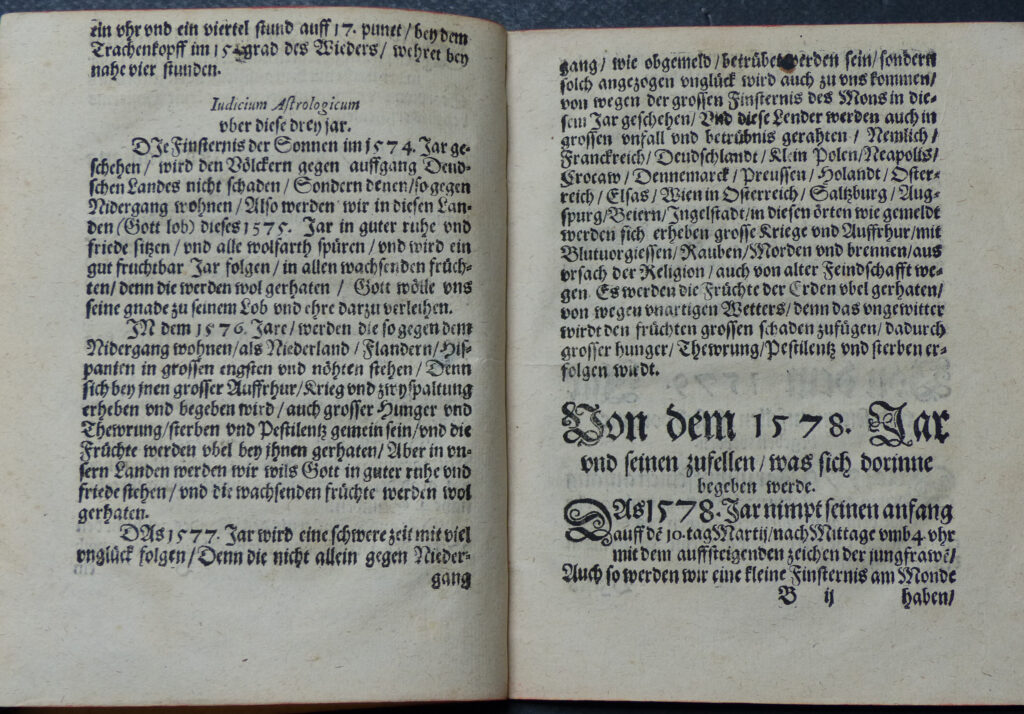 ein vhr vnd ein viertel stund auff 17. punct / bey dem
Trachenkopff im 15 grad des Wieders / wehret bey
nahe vier stunden.
Iudicium Astrologicum
vber diese drey jar.
DJe Finsternis der Sonnen im 1574. Jar ge-
schehen / wird den Völckern gegen auffgang Deud-
schen Landes nicht schaden / Sondern denen / so gegen
Nidergang wohnen / Also werden wir in diesen Lan-
den (Gott lob) dieses 1575. Jar in guter ruhe vnd
friede sitzen / vnd alle wolfarth spüren / vnd wird ein
gut fruchtbar Jar folgen / in allen wachsenden früch-
ten / denn die werden wol gerhaten / Gott wölle vns
seine gnade zu seinem Lob vnd ehre darzu verleihen.
JN dem 1576. Jare / werden die so gegen dem
Nidergang wohnen / als Niederland / Flandern / His-
panien in grossen engsten vnd nöhten stehen / Denn
sich bey jnen grosser Auffrhur / Krieg vnd zwyspaltung
erheben vnd begeben wird / auch grosser Hunger vnd
Thewrung / sterben vnd Pestilentz gemein sein / vnd die
Früchte werden vbel bey jhnen gerhaten / Aber in vn-
sern Landen werden wir wils Gott in guter ruhe vnd
friede stehen / vnd die wachsenden früchte werden wol
gerhaten.
DAs 1577. Jar wird eine schwere zeit mit viel
vnglück folgen / Denn die nicht allein gegen Nieder-
gang
gang / wie obgemeld / betrübet werden sein / sondern
solch angezogen vnglück wird auch zu vns kommen /
von wegen der grossen Finsternis des Mons in die-
sem Jar geschehen / Vnd diese Lender werden auch in
grossen vnfall vnd betrübnis gerahten / Nemlich /
Franckreich / Deudschlandt / Klein Polen / Neapolis /
Crocaw / Dennemarck / Preussen / Holandt / Öster-
reich / Elsas / Wien in Österreich / Saltzburg / Aug-
spurg / Beiern / Jngelstadt / in diesen örten wie gemeldt
werden sich erheben grosse Kriege vnd Auffrhur / mit
Blutuorgiessen / Rauben / Morden vnd brennen / aus
vrsach der Religion / auch von alter Feindschafft we-
gen. Es werden die Früchte der Erden vbel gerhaten /
von wegen vnartigen Wetters / denn das vngewitter
wirdt den früchten grossen schaden zufügen / dadurch
grosser hunger / Thewrung / Pestilentz vnd sterben er-
folgen wirdt.
Von dem 1578. Jar
vnd seinen zufellen / was sich dorinne
begeben werde.
DAs 1578. Jar nimpt seinen anfang
auff dē 10. tag Martij / nach Mittage vmb 4 vhr
mit dem auffsteigenden zeichen der jungfrawē /
Auch so werden wir eine kleine Finsternis am Monde
B ij haben /